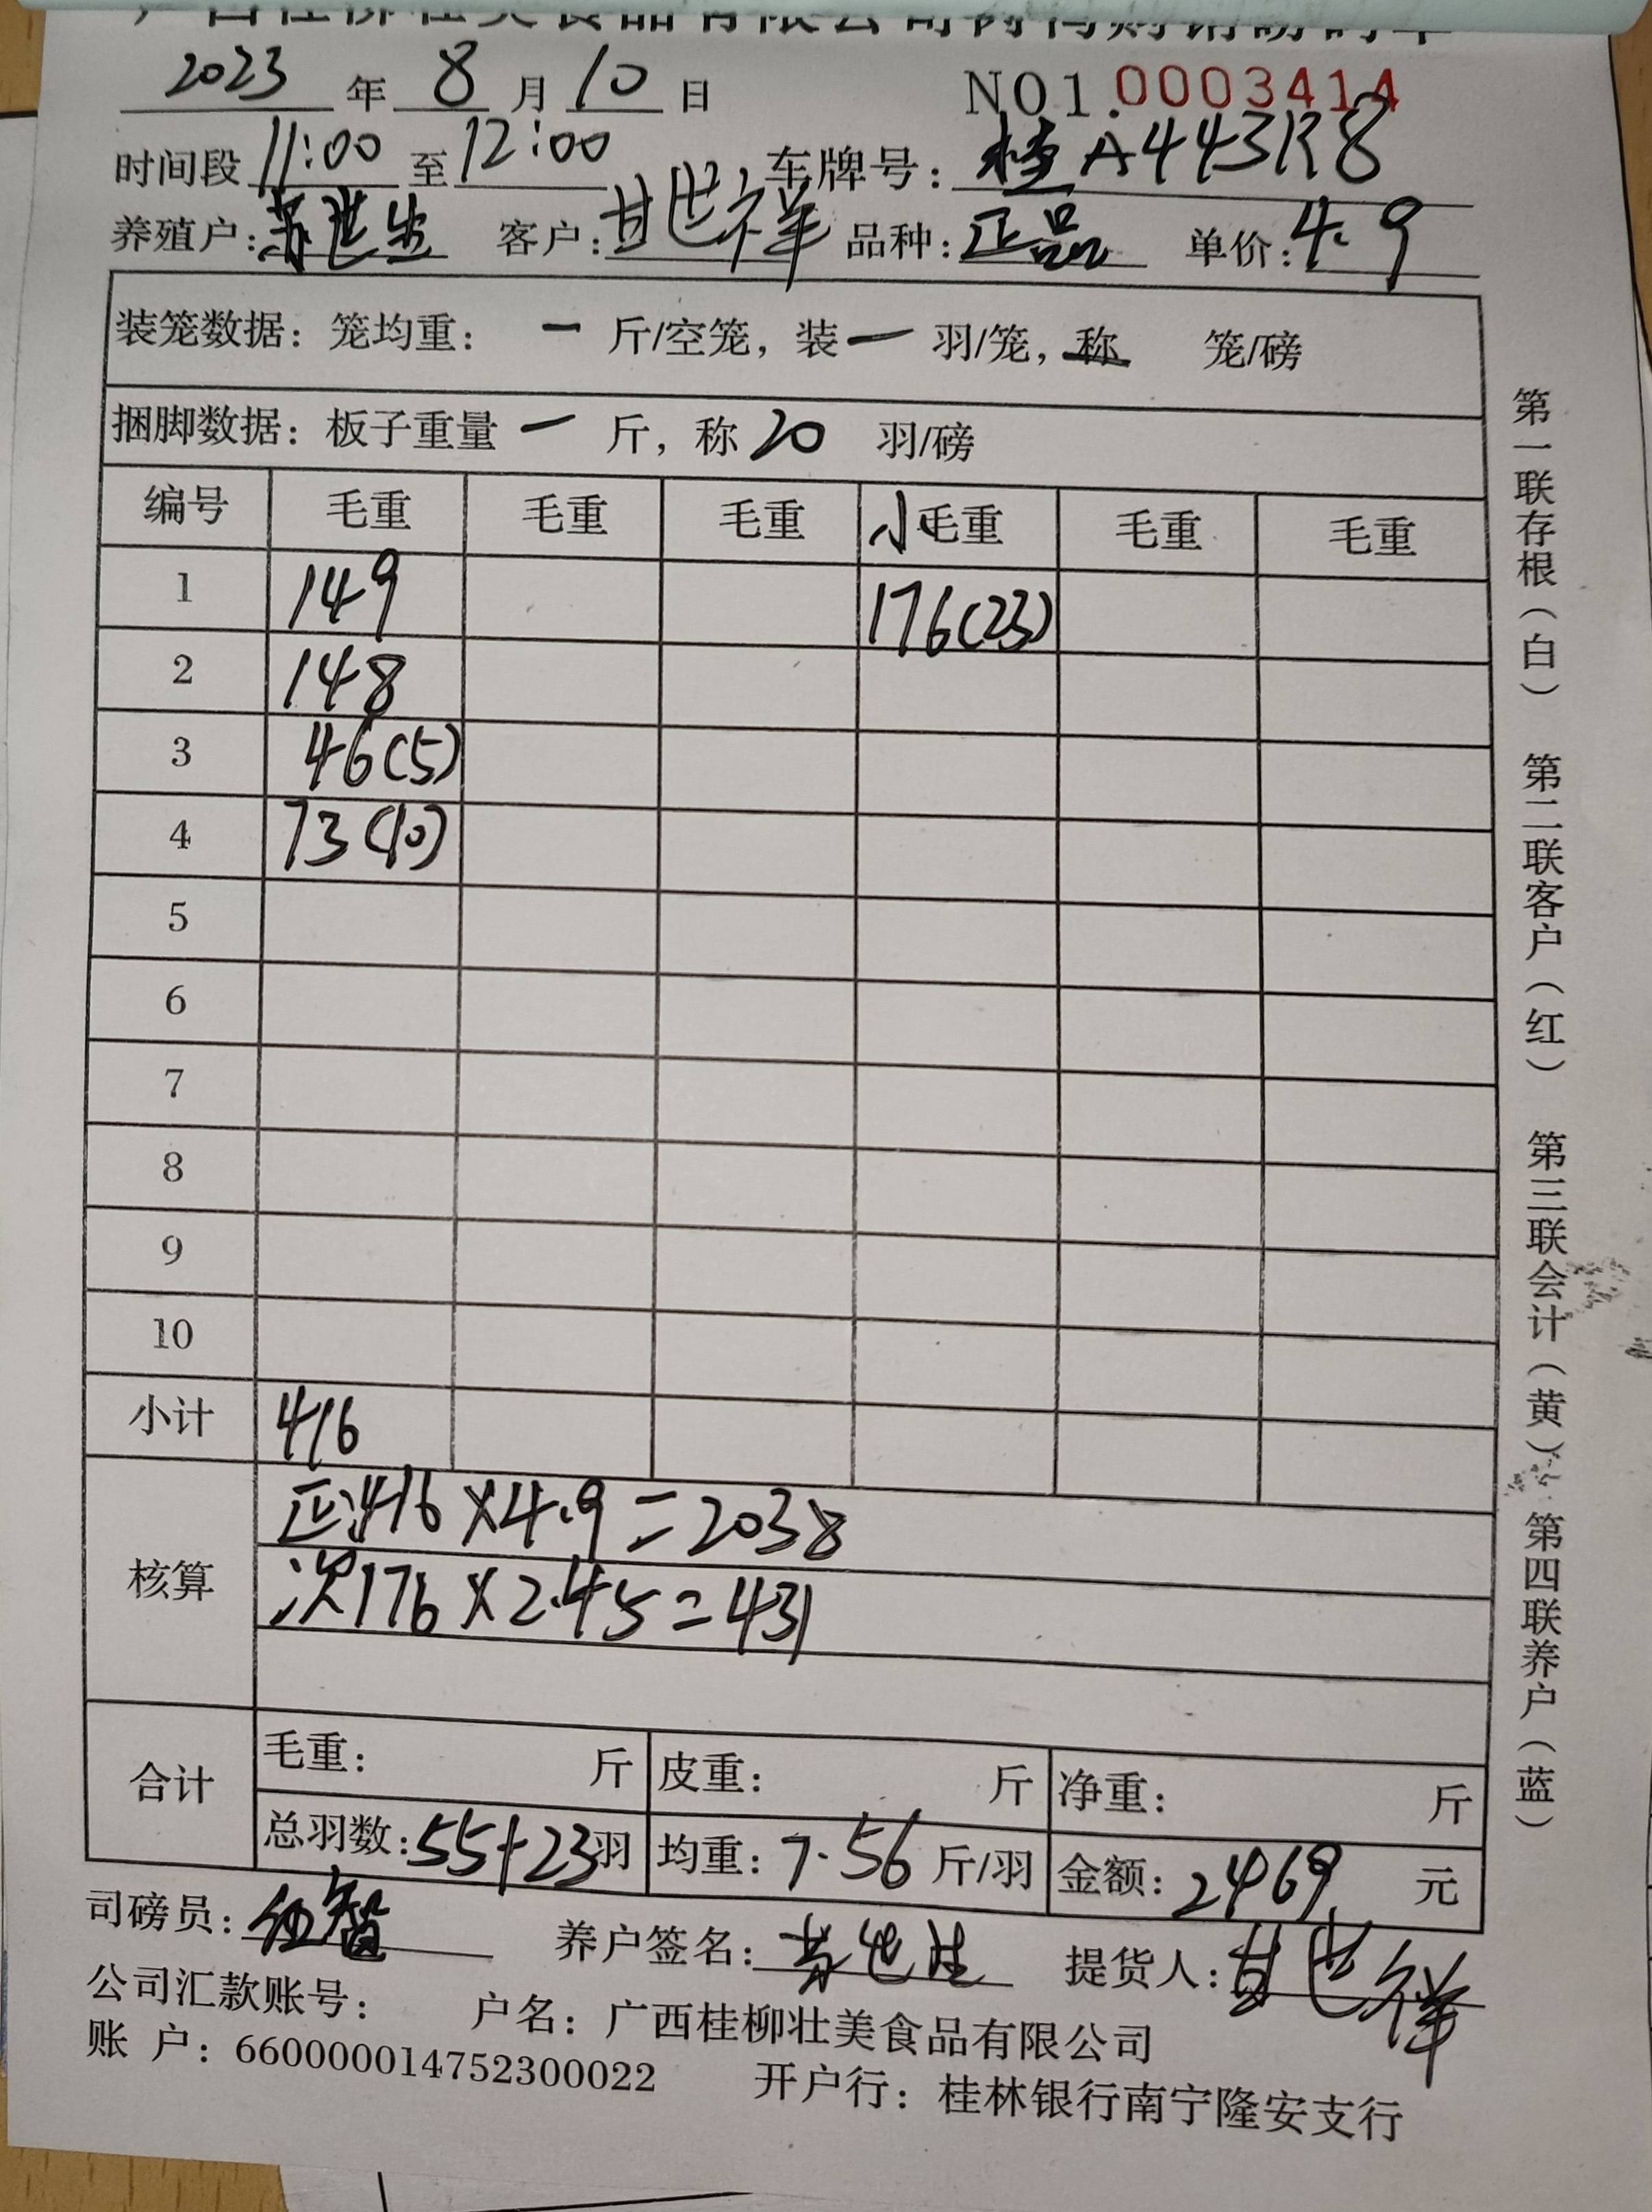 2023 年 8 月 10 日 NO1.0003414
时间段 11:00 至 12:00 车牌号: 桂A443R8
养殖户: 世生 客户: 甘世祥 品种: 正品 单价: 4.9
装笼数据: 笼均重: 一 斤/空笼, 装 一 羽/笼, 称 笼/磅
捆脚数据: 板子重量 一 斤, 称 20 羽/磅
编号 毛重 毛重 毛重 小毛重 毛重 毛重
1 149 176(23)
2 148
3 46(5)
4 73(10)
5
6
7
8
9
10
小计 416
核算 正:416×4.9=2038
次176×2.45=431
合计 毛重: 斤 皮重: 斤 净重: 斤
总羽数: 55+23羽 均重: 7.56 斤/羽 金额: 2469 元
司磅员: 智 养户签名: 世生 提货人: 甘世祥
公司汇款账号: 户名: 广西桂柳壮美食品有限公司
账 户: 660000014752300022 开户行: 桂林银行南宁隆安支行
第一联存根(白) 第二联客户(红) 第三联会计(黄) 第四联养户(蓝)